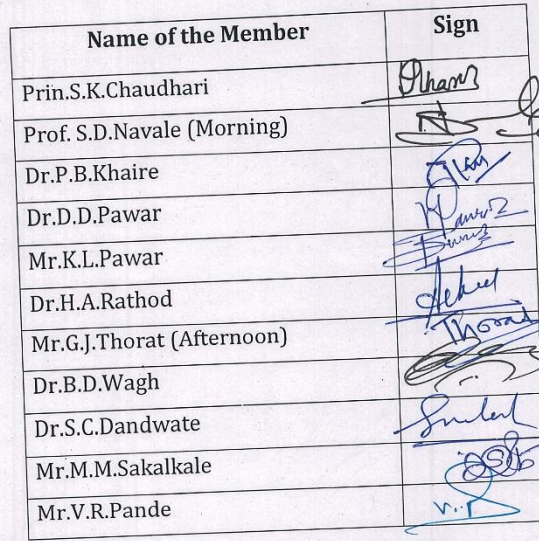 Name of the Member Sign
Prin.S.K.Chaudhari
Prof. S.D.Navale (Morning)
Dr.P.B.Khaire
Dr.D.D.Pawar
Mr.K.L.Pawar
Dr.H.A.Rathod
Mr.G.J.Thorat (Afternoon) Thorat
Dr.B.D.Wagh
Dr.S.C.Dandwate
Mr.M.M.Sakalkale
Mr.V.R.Pande